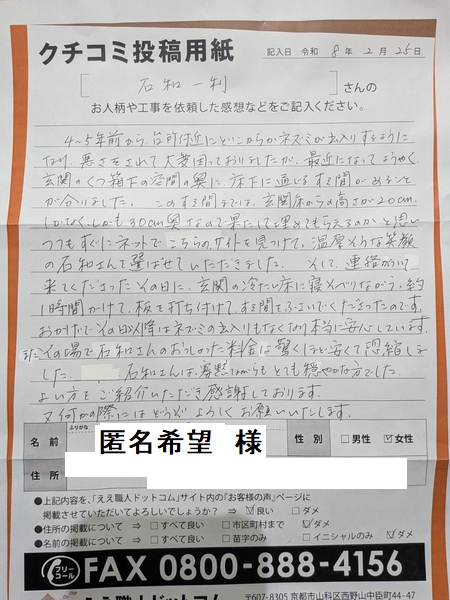 クチコミ投稿用紙
記入日 令和 8年 2月 25日
石和 一利 さんの
お人柄や工事を依頼した感想などをご記入ください。
4～5年前から台所付近にどこからかネズミが出入りするように
なり、悪さをされて大変困っておりましたが、最近になってようやく
玄関のくつ箱下の空間の奥に床下に通じるすき間があること
が分りました。このすき間までは、玄関床からの高さが20cm
しかなく、しかも30cm奥なので果たして埋めてもらえるのかと思い
つつもすぐにネットでこちらのサイトを見つけて、温厚そうな笑顔
の石和さんを選ばせていただきました。そして、連絡がついて
来てくださったその日に、玄関の冷たい床に寝そべりながら、約
1時間かけて、板を打ち付けて、すき間をふさいでくださったのです。
おかげでその日以降はネズミの出入りもなくなり本当に安心しています。
またその場で石和さんのおっしゃった料金は驚くほど安くて恐縮しま
した。石和さんは、寡黙ながらもとても穏やかな方でした。
よい方をご紹介いただき感謝しております。
又何かの際にはどうぞよろしくお願いいたします。
ふりがな
名前 匿名希望 様 性別 □男性 ☑女性
住所
●上記内容を、「ええ職人ドットコム」サイト内の「お客様の声」ページに
掲載させていただいてよろしいでしょうか？ ⇒ ☑良い □ダメ
●住所の掲載について ⇒ □すべて良い □市区町村まで ☑ダメ
●名前の掲載について ⇒ □すべて良い □苗字のみ □イニシャルのみ ☑ダメ
フリーコール FAX 0800-888-4156
ええ職人ドットコム 〒607-8305 京都市山科区西野山中臣町44-47